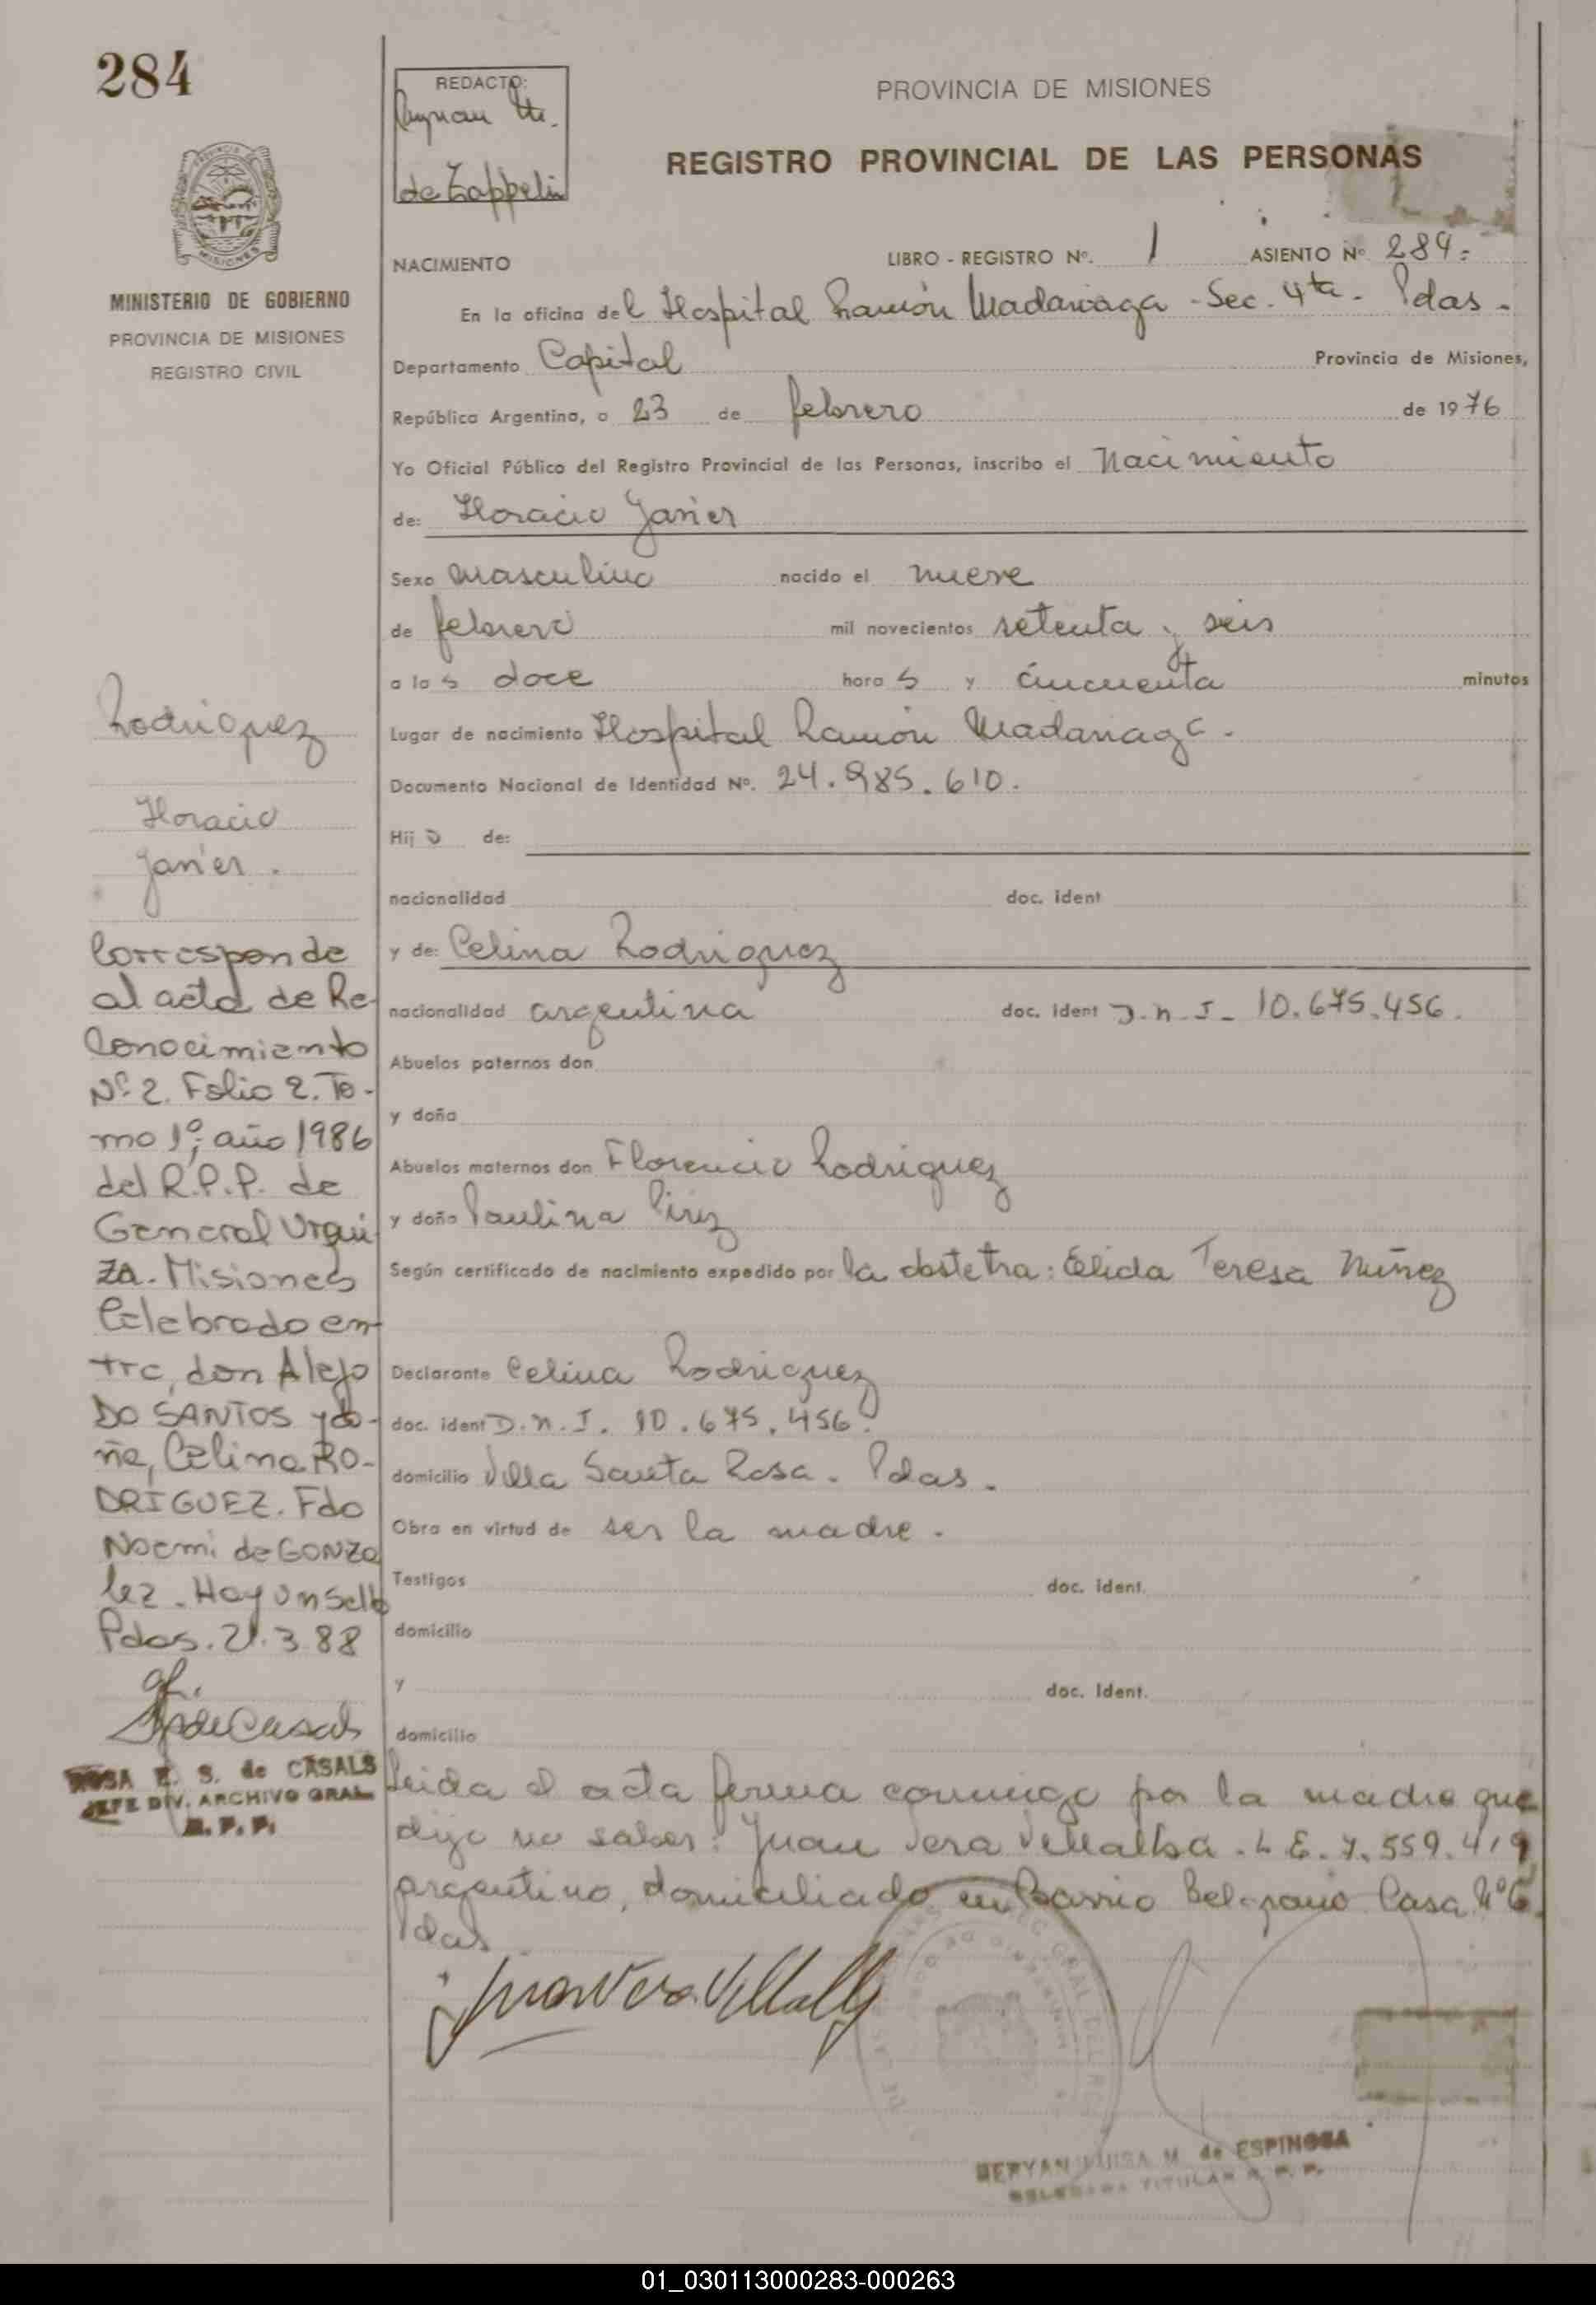 284
REDACTO:
de Zappelin
PROVINCIA DE MISIONES
REGISTRO PROVINCIAL DE LAS PERSONAS
MINISTERIO DE GOBIERNO
PROVINCIA DE MISIONES
REGISTRO CIVIL
NACIMIENTO
LIBRO - REGISTRO Nº. 1 ASIENTO Nº 284.
En la oficina del Hospital Ramón Madariaga - Sec. 4ta - Pdas.
Departamento Capital Provincia de Misiones,
República Argentina, a 23 de febrero de 1976
Yo Oficial Público del Registro Provincial de las Personas, inscribo el Nacimiento
de: Horacio Javier
Sexo masculino nacido el nueve
de febrero mil novecientos setenta y seis
a las doce horas y cincuenta minutos
Lugar de nacimiento Hospital Ramón Madariaga.
Documento Nacional de Identidad Nº. 24.985.610.
Hijo de:
nacionalidad doc. ident
y de: Celina Rodriguez
nacionalidad argentina doc. ident D.N.I. 10.675.456.
Abuelos paternos don
y doña
Abuelos maternos don Florencio Rodriguez
y doña Paulina
Según certificado de nacimiento expedido por la obstetra: Elida Teresa Núñez
Declarante Celina Rodriguez
doc. ident D.N.I. 10.675.456.
domicilio Villa Santa Rosa. Pdas.
Obra en virtud de ser la madre.
Testigos doc. ident.
domicilio
y doc. Ident.
domicilio
Leida el acta firma conmigo por la madre que
dijo no saber: Juan Vera Villalba. L.E. 7.559.419
argentino, domiciliado en Barrio Belgrano Casa Nº 6.
Pdas
Juan Vera Villalba
LUISA M. de ESPINOSA
DELEGADA TITULAR R. P. P.
Rodriguez
Horacio
Javier.
Corresponde
al acta de Re
Conocimiento
Nº 2. Folio 2. To-
mo 1º; año 1986
del R.P.P. de
General Urqui
za. Misiones
Celebrado en-
tre, don Alejo
DO SANTOS y do-
ña, Celina RO-
DRIGUEZ. Fdo
Noemi de GONZA
lez. Hay un sello
Pdas. 21.3.88
ROSA E. S. de CASALS
JEFE DIV. ARCHIVO GRAL.
R. P. P.
01_030113000283-000263